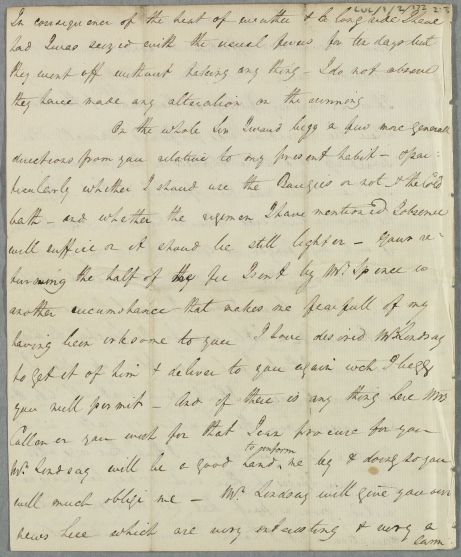 CUL/1/2/132 2.3
In consequence of the heat of weather & the long ride I have
had I was seized with the usual fevers for ten days but
they went off without taking any thing – I do not observe
they have made any alteration on the running
On the whole Sir I would begg a few more general
directions from you relative to my present habit – & par:
ticularly whether I should use the Bougies or not & the Cold
bath – and whether the regimen I have mentioned I observe
will suffice or it should be still lighter – Your re:
turning the half of my fee I sent by Mr. Spence is
another circumstance that makes me fearfull of my
having been irksome to you I have desired Mr. Lindsay
to get it of him & deliver to you again wch I begg
you will permit – And if there is any thing here Mrs
Cullen or you wish for that I can procure for you
to inform
Mr. Lindsay will be a good hand me by & doing so you
will much oblige me – Mr. Lindsay will give you our
news here which are very interesting & very a
larm: